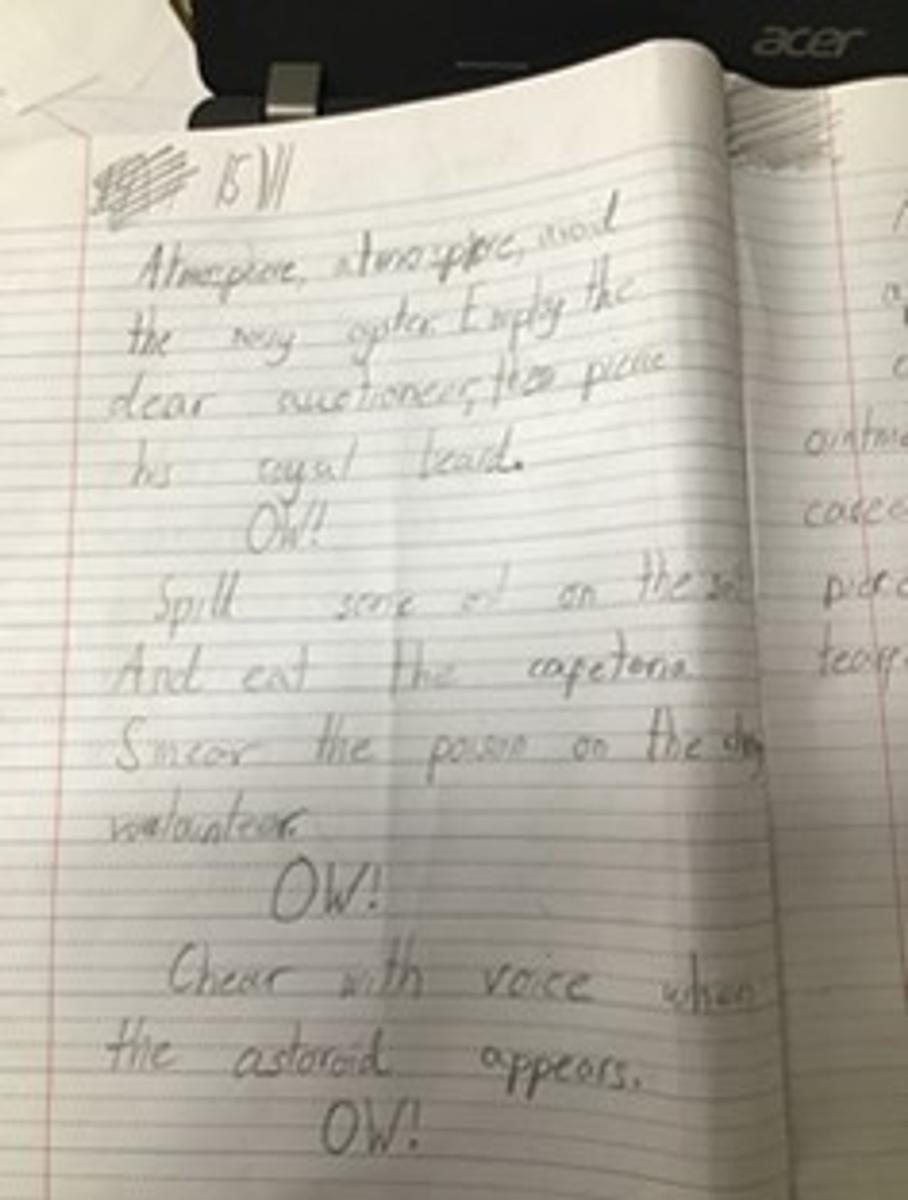 acer
15 VII
Atmosphere, atmosphere, avoid
the noisy oyster. Employ the
dear auctioneer, then pierce
his royal beard.
OW!
Spill some oil on the
And eat the cafeteria.
Smear the poison on the
voulaunteer.
OW!
Chear with voice when
the astoroid appears.
OW!